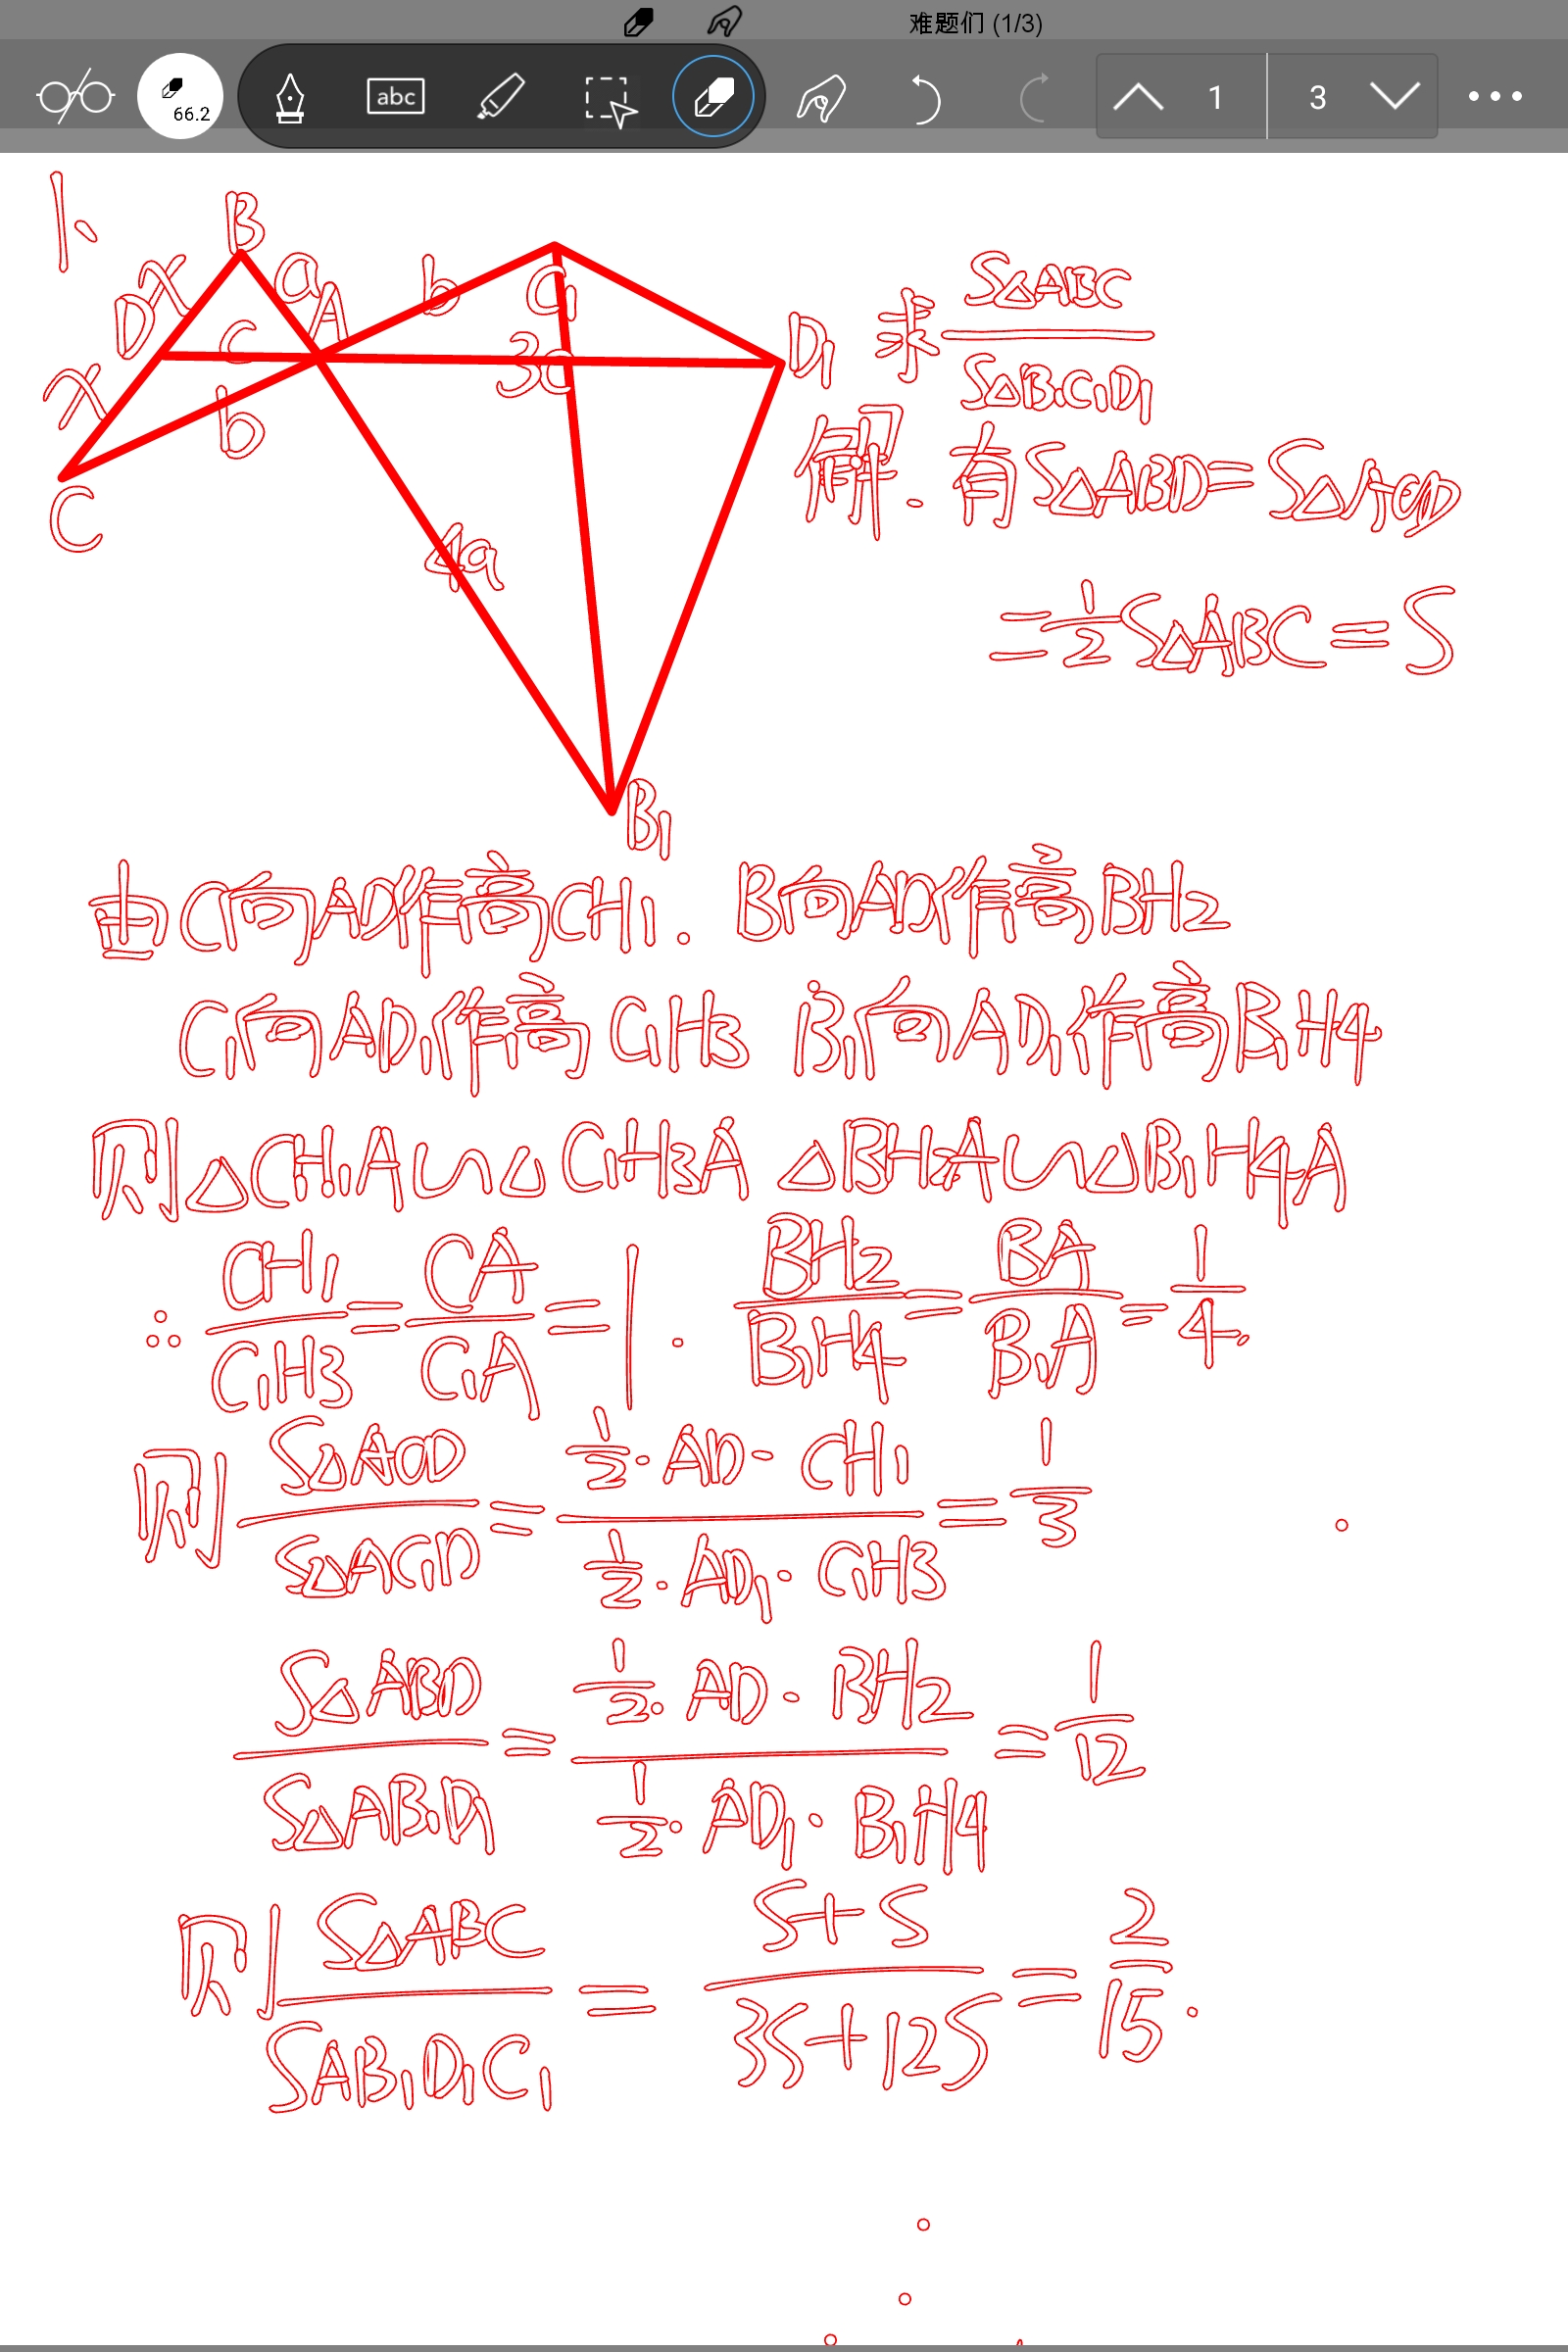 难题们 (1/3)
66.2
abc
1
3
1、
B
x
a
A
b
C1
D
c
3c
D1
x
b
C
4a
B1
求 S△ABC / S△B1C1D1
解. 有S△ABD=S△ACD
=1/2 S△ABC=S
由C向AD作高CH1. B向AD作高BH2
C1向AD1作高C1H3 B1向AD1作高B1H4
则△CH1A∽△C1H3A △BH2A∽△B1H4A
∴ CH1/C1H3=CA/C1A=1. BH2/B1H4=BA/B1A=1/4.
则 S△ACD/S△AC1D=(1/2·AD·CH1)/(1/2·AD1·C1H3)=1/3
S△ABD/S△AB1D1=(1/2·AD·BH2)/(1/2·AD1·B1H4)=1/12
则 S△ABC/SAB1D1C1=(S+S)/(3S+12S)=2/15.